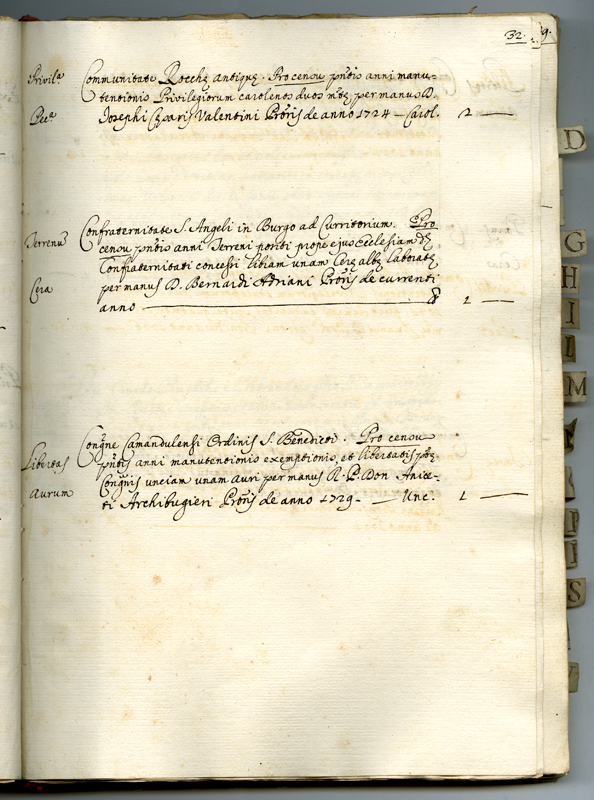 32. 9.
Privil.ᵃ Communitate Rocchę Antiquę. Pro censu pñtis anni manu-
tentionis Privilegiorum carolenos duos m̃tę per manus D.
Pec.ᵃ Josephi Cęsaris Valentini Pr̃oris de anno 1724 — Carol. 2 —
Terrenū Confraternitate S. Angeli in Burgo ad Curritorium. Pro
censu pñtis anni Terreni positi prope ejus Ecclesiam dę
Confraternitati concessi libiam unam Cerę albę laboratę
Cera per manus D. Bernardi Adriani Pr̃oris de currenti
anno — 1 —
Cong̃ne Camandulensi Ordinis S. Benedicti. Pro censu
Libertas pñtis anni manutentionis exemptionis, et libertatis ptę
Cong̃nis unciam unam auri per manus R. P. Don Anice-
Aurum ti Archibugieri Pr̃oris de anno 1729 — Unc. 1 —
D
G
H
I
L
M
P
I
S